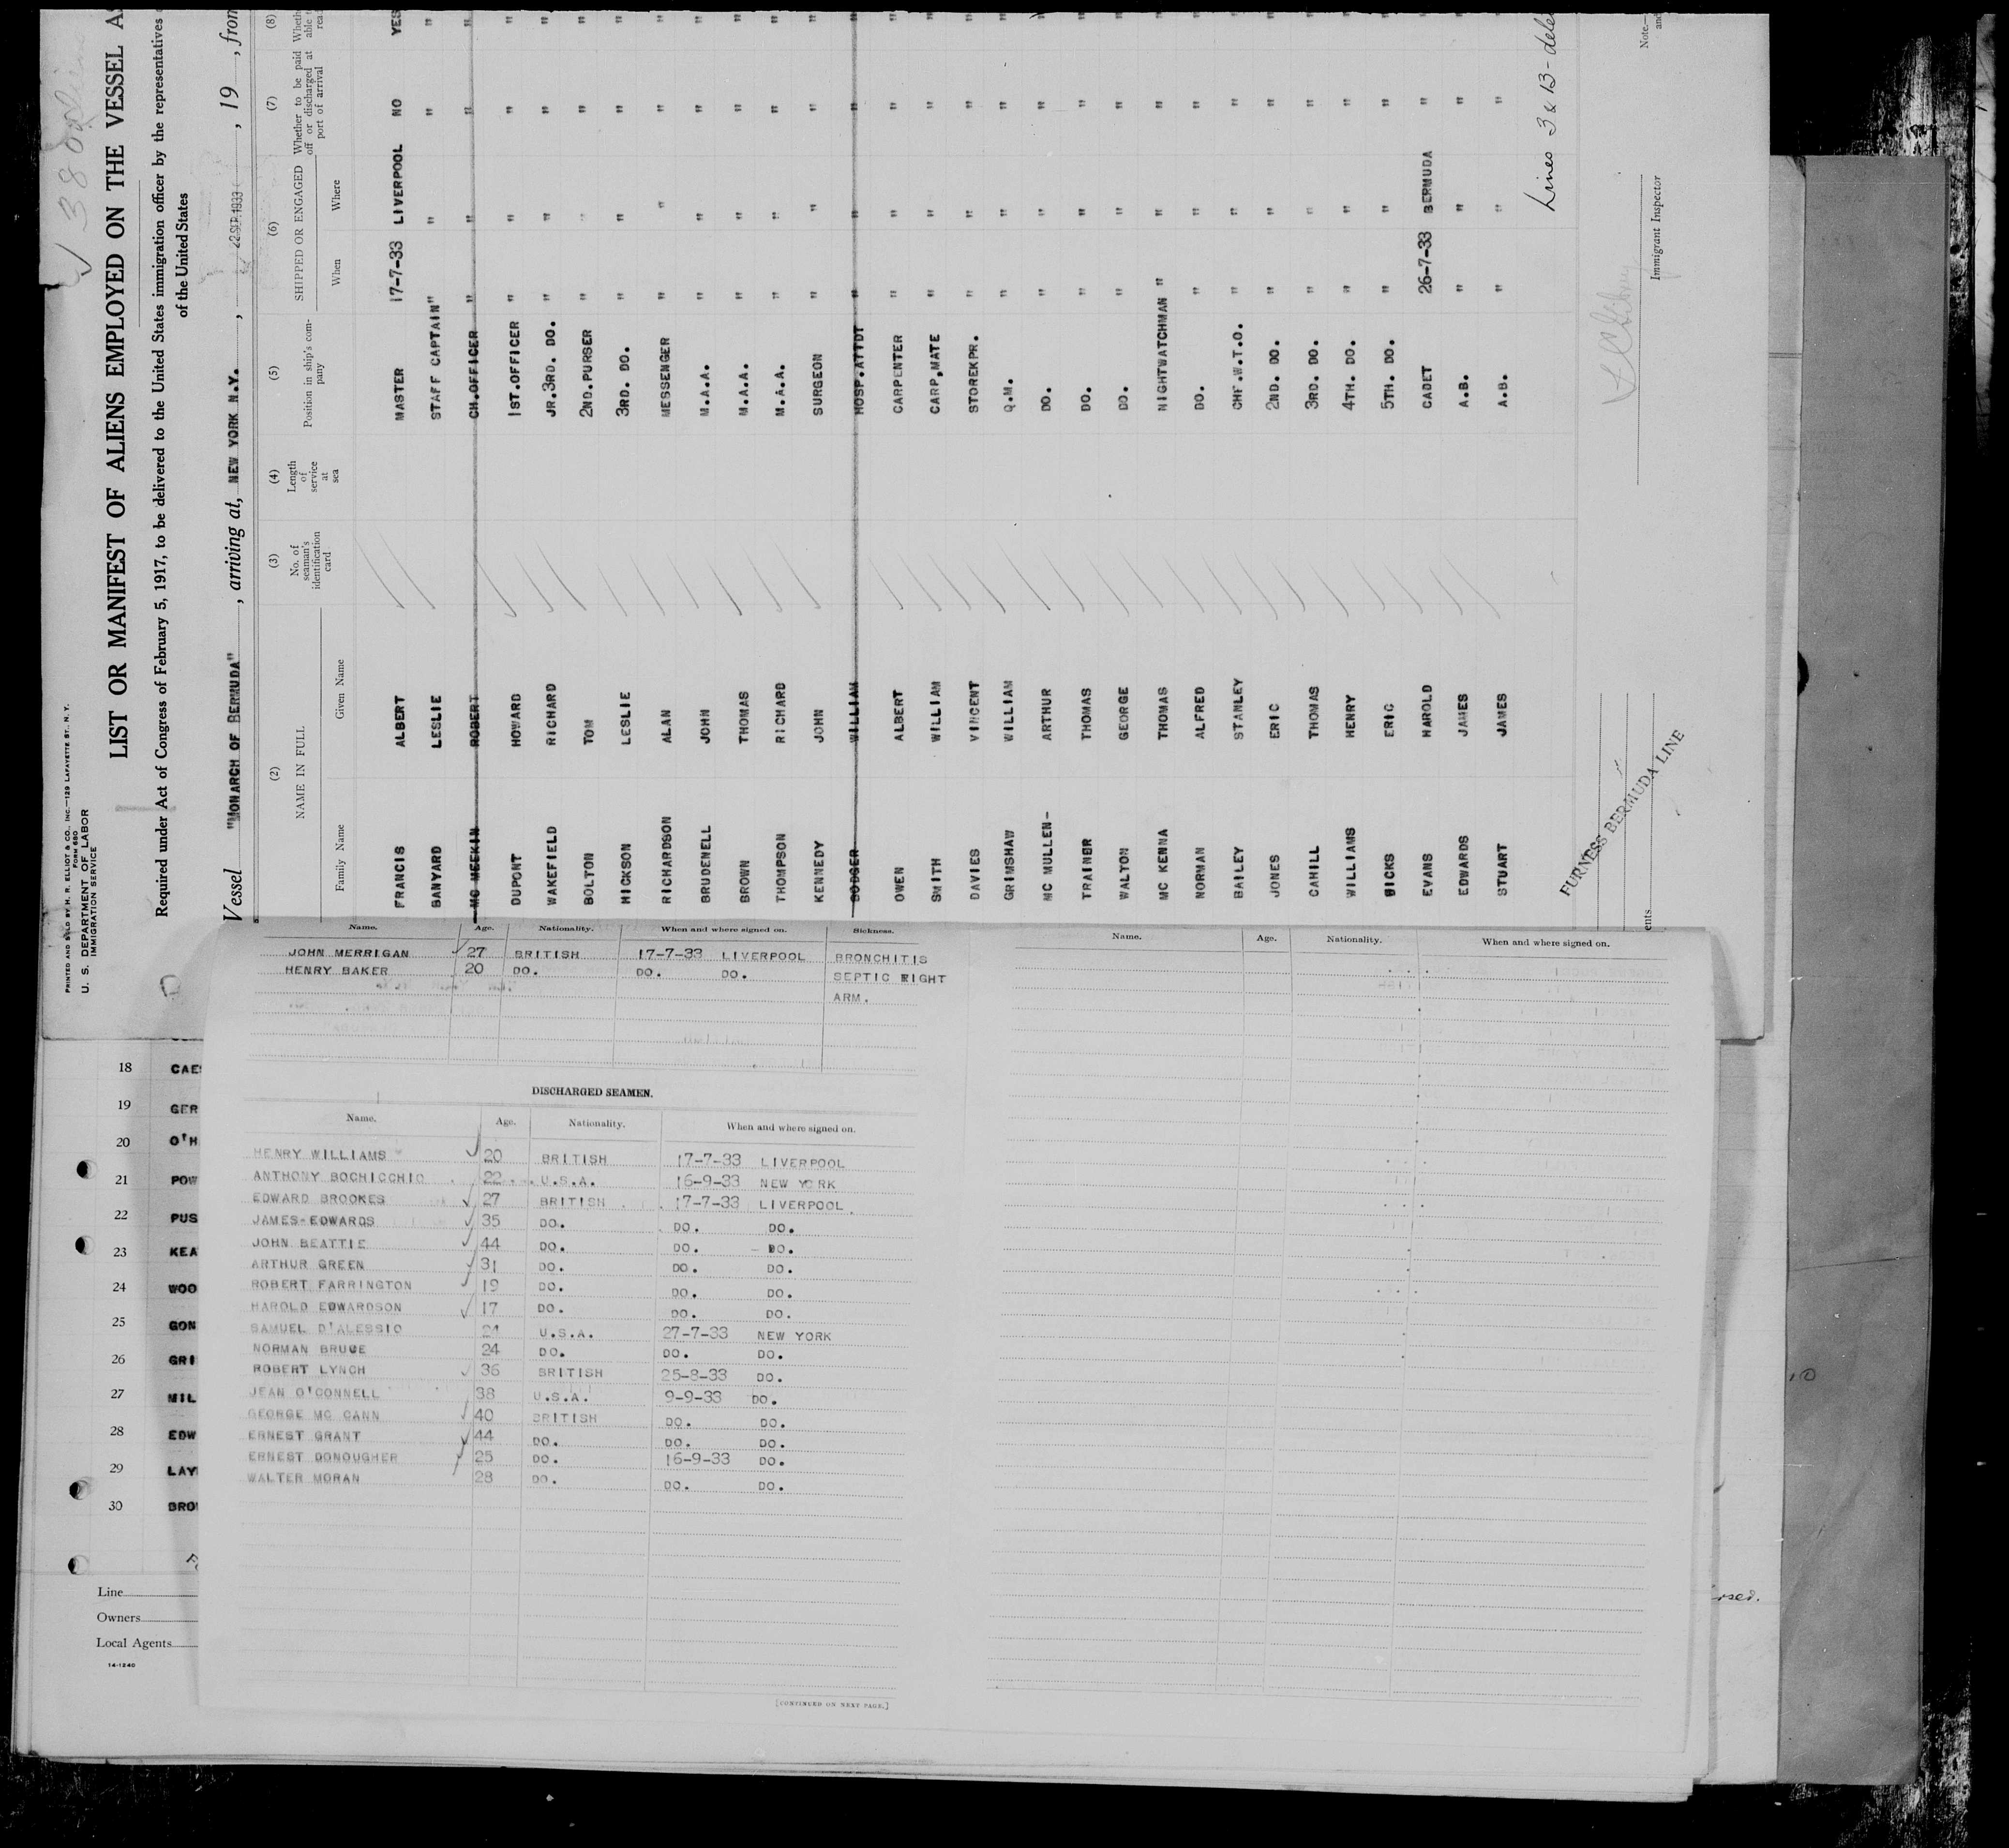 PRINTED AND SOLD BY H. R. ELLIOT & CO., INC.—129 LAFAYETTE ST., N. Y.
FORM 680
U. S. DEPARTMENT OF LABOR
IMMIGRATION SERVICE
LIST OR MANIFEST OF ALIENS EMPLOYED ON THE VESSEL AS
Required under Act of Congress of February 5, 1917, to be delivered to the United States immigration officer by the representatives
of the United States
Vessel "MONARCH OF BERMUDA", arriving at, NEW YORK N.Y., 22 SEP 1933, 19, from
(2) (3) (4) (5) (6) (7) (8)
NAME IN FULL No. of seaman's identification card Length of service at sea Position in ship's company SHIPPED OR ENGAGED Whether to be paid off or discharged at port of arrival
Family Name Given Name When Where
FRANCIS ALBERT MASTER 17-7-33 LIVERPOOL NO YES
BANYARD LESLIE STAFF CAPTAIN " " " "
MC MEEKIN ROBERT CH.OFFICER " " " "
DUPONT HOWARD 1ST.OFFICER " " " "
WAKEFIELD RICHARD JR.3RD. DO. " " " "
BOLTON TOM 2ND.PURSER " " " "
HICKSON LESLIE 3RD. DO. " " " "
RICHARDSON ALAN MESSENGER " " " "
BRUDENELL JOHN M.A.A. " " " "
BROWN THOMAS M.A.A. " " " "
THOMPSON RICHARD M.A.A. " " " "
KENNEDY JOHN SURGEON " " " "
WILLIAM HOSP.ATTDT " " " "
OWEN ALBERT CARPENTER " " " "
SMITH WILLIAM CARP.MATE " " " "
DAVIES VINCENT STOREKPR. " " " "
GRIMSHAW WILLIAM Q.M. " " " "
MC MULLEN- ARTHUR DO. " " " "
TRAINER THOMAS DO. " " " "
WALTON GEORGE DO. " " " "
MC KENNA THOMAS NIGHTWATCHMAN " " " "
NORMAN ALFRED DO. " " " "
BAILEY STANLEY CHF.W.T.O. " " " "
JONES ERIC 2ND. DO. " " " "
CAHILL THOMAS 3RD. DO. " " " "
WILLIAMS HENRY 4TH. DO. " " " "
ERIC 5TH. DO. " " " "
EVANS HAROLD CADET 26-7-33 BERMUDA " "
EDWARDS JAMES A.B. " " " "
STUART JAMES A.B. " " " "
Lines 3 & 13 - dele
FURNESS BERMUDA LINE
Immigrant Inspector
Note.—
Name. Age. Nationality. When and where signed on. Sickness.
JOHN MERRIGAN 27 BRITISH 17-7-33 LIVERPOOL BRONCHITIS
HENRY BAKER 20 DO. DO. DO. SEPTIC RIGHT
ARM.
DISCHARGED SEAMEN.
Name. Age. Nationality. When and where signed on.
HENRY WILLIAMS 20 BRITISH 17-7-33 LIVERPOOL
ANTHONY BOCHICCHIO 22 U.S.A. 16-9-33 NEW YORK
EDWARD BROOKES 27 BRITISH 17-7-33 LIVERPOOL
JAMES-EDWARDS 35 DO. DO. DO.
JOHN BEATTIE 44 DO. DO. DO.
ARTHUR GREEN 31 DO. DO. DO.
ROBERT FARRINGTON 19 DO. DO. DO.
HAROLD EDWARDSON 17 DO. DO. DO.
SAMUEL D'ALESSIO 21 U.S.A. 27-7-33 NEW YORK
NORMAN BRUCE 24 DO. DO. DO.
ROBERT LYNCH 36 BRITISH 25-8-33 DO.
JEAN O'CONNELL 38 U.S.A. 9-9-33 DO.
GEORGE MC CANN 40 BRITISH DO. DO.
ERNEST GRANT 44 DO. DO. DO.
ERNEST DONOUGHER 25 DO. 16-9-33 DO.
WALTER MORAN 28 DO. DO. DO.
[CONTINUED ON NEXT PAGE.]
Name. Age. Nationality. When and where signed on.
18 CAE
19 GER
20 O'H
21 POW
22 PUS
23 KEA
24 WOO
25 GON
26 GRI
27 MIL
28 EDW
29 LAY
30 BRO
Line
Owners
Local Agents
14-1240